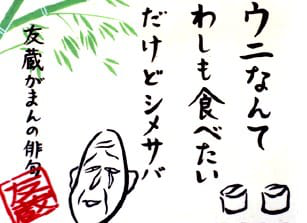 ウニなんて
わしも食べたい
だけどシメサバ
友蔵がまんの俳句
友蔵